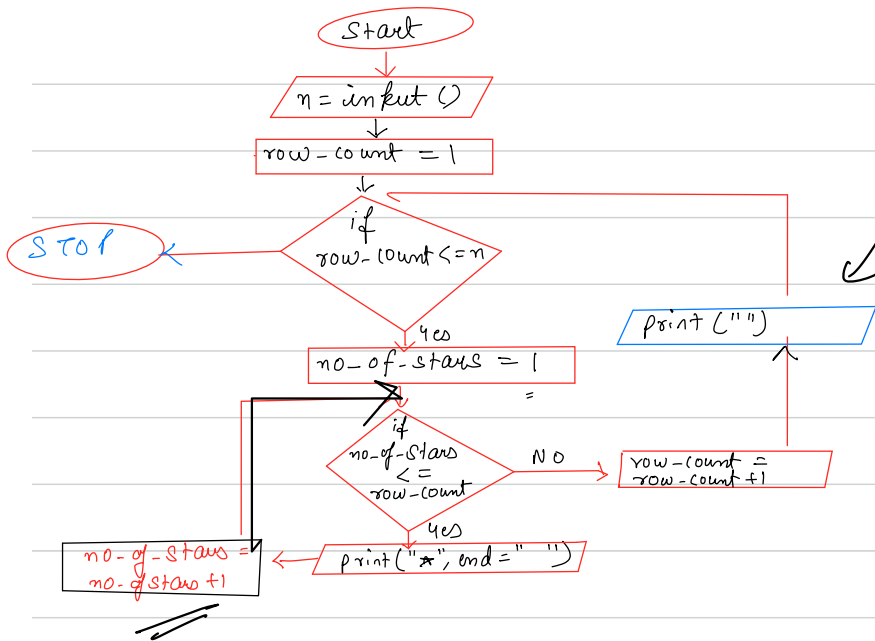 Start
n = input ()
row-count = 1
if
row-count <= n
STOP
Yes
print ("")
no-of-stars = 1
=
if
no-of-stars
<=
row-count
NO
row-count =
row-count +1
Yes
print("*", end=" ")
no-of-stars =
no-of stars +1